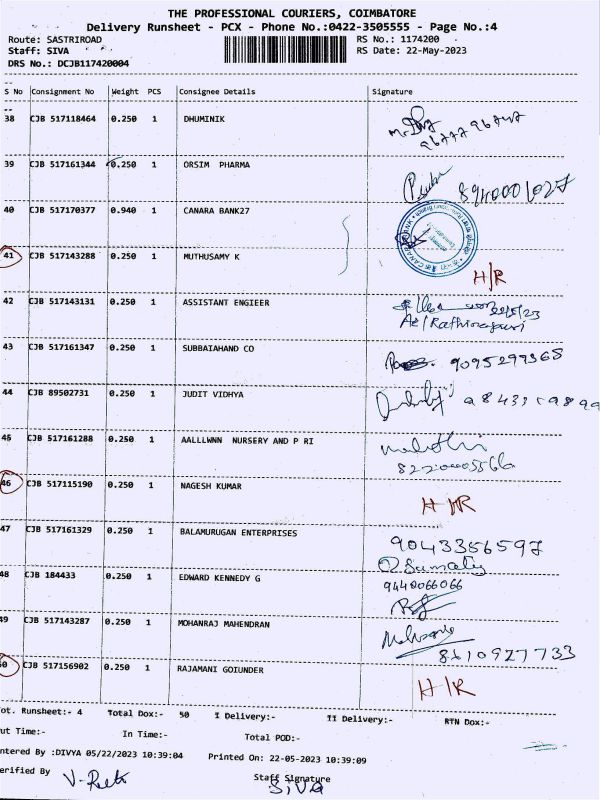 THE PROFESSIONAL COURIERS, COIMBATORE
Delivery Runsheet - PCX - Phone No.:0422-3505555 - Page No.:4
Route: SASTRIROAD RS No.: 1174200
Staff: SIVA RS Date: 22-May-2023
DRS No.: DCJB117420004
S No Consignment No Weight PCS Consignee Details Signature
38 CJB 517118464 0.250 1 DHUMINIK
39 CJB 517161344 0.250 1 ORSIM PHARMA
40 CJB 517170377 0.940 1 CANARA BANK27
41 CJB 517143288 0.250 1 MUTHUSAMY K H/R
42 CJB 517143131 0.250 1 ASSISTANT ENGIEER
AE/Rathinapuri
43 CJB 517161347 0.250 1 SUBBAIAHAND CO 9095299365
44 CJB 89502731 0.250 1 JUDIT VIDHYA
45 CJB 517161288 0.250 1 AALLLWNN NURSERY AND P RI
46 CJB 517115190 0.250 1 NAGESH KUMAR H/R
47 CJB 517161329 0.250 1 BALAMURUGAN ENTERPRISES 9043356597
Sumathy
48 CJB 184433 0.250 1 EDWARD KENNEDY G 9440066066
49 CJB 517143287 0.250 1 MOHANRAJ MAHENDRAN
8610927733
50 CJB 517156902 0.250 1 RAJAMANI GOIUNDER H/R
ot. Runsheet:- 4 Total Dox:- 50 I Delivery:- II Delivery:- RTN Dox:-
ut Time:- In Time:- Total POD:-
ntered By :DIVYA 05/22/2023 10:39:04 Printed On: 22-05-2023 10:39:09
erified By Staff Signature
SIVA